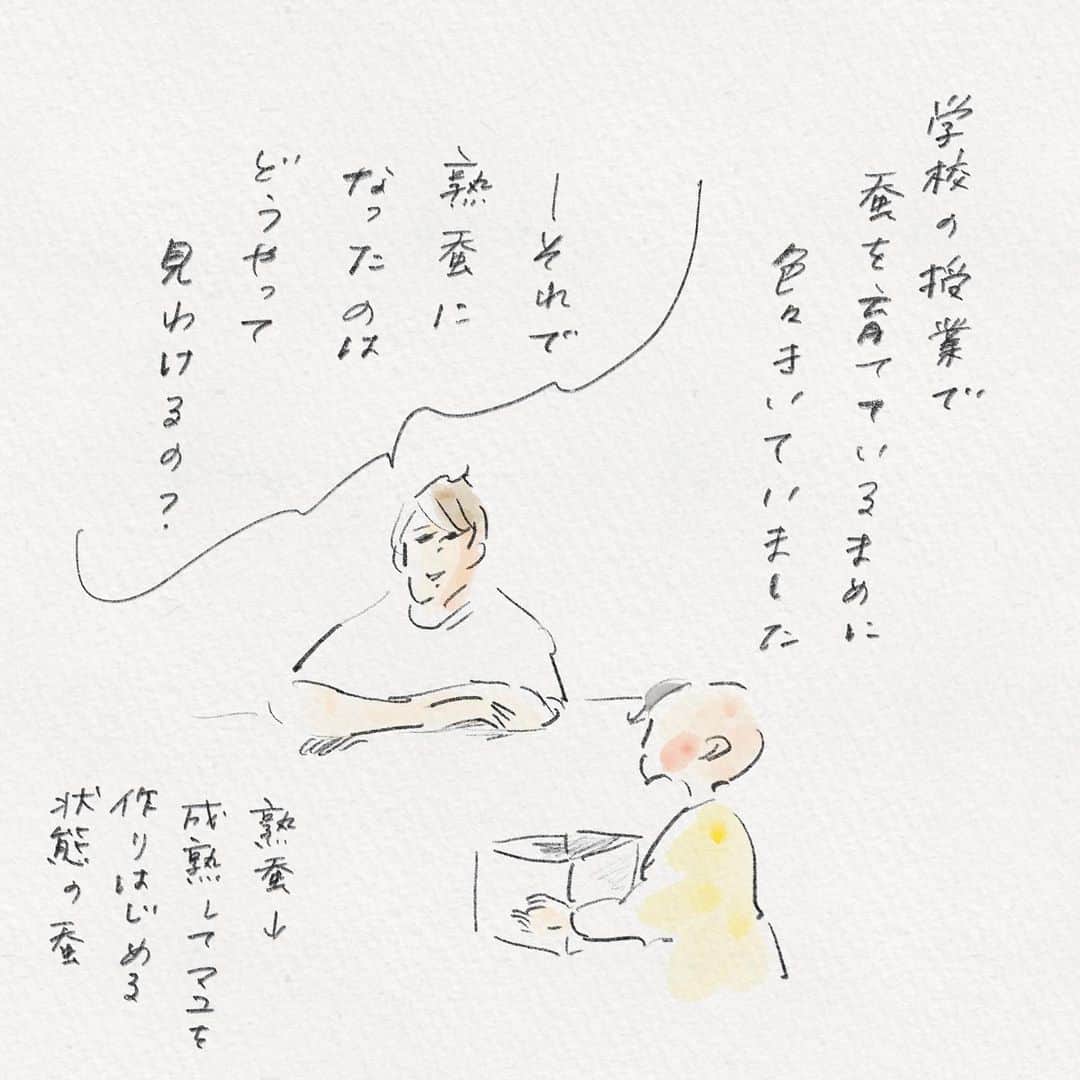 学校の授業で
蚕を育てているまめに
色々きいていました
ーそれで
熟蚕に
なったのは
どうやって
見わけるの?
熟蚕↓
成熟してマユを
作りはじめる
状態の蚕